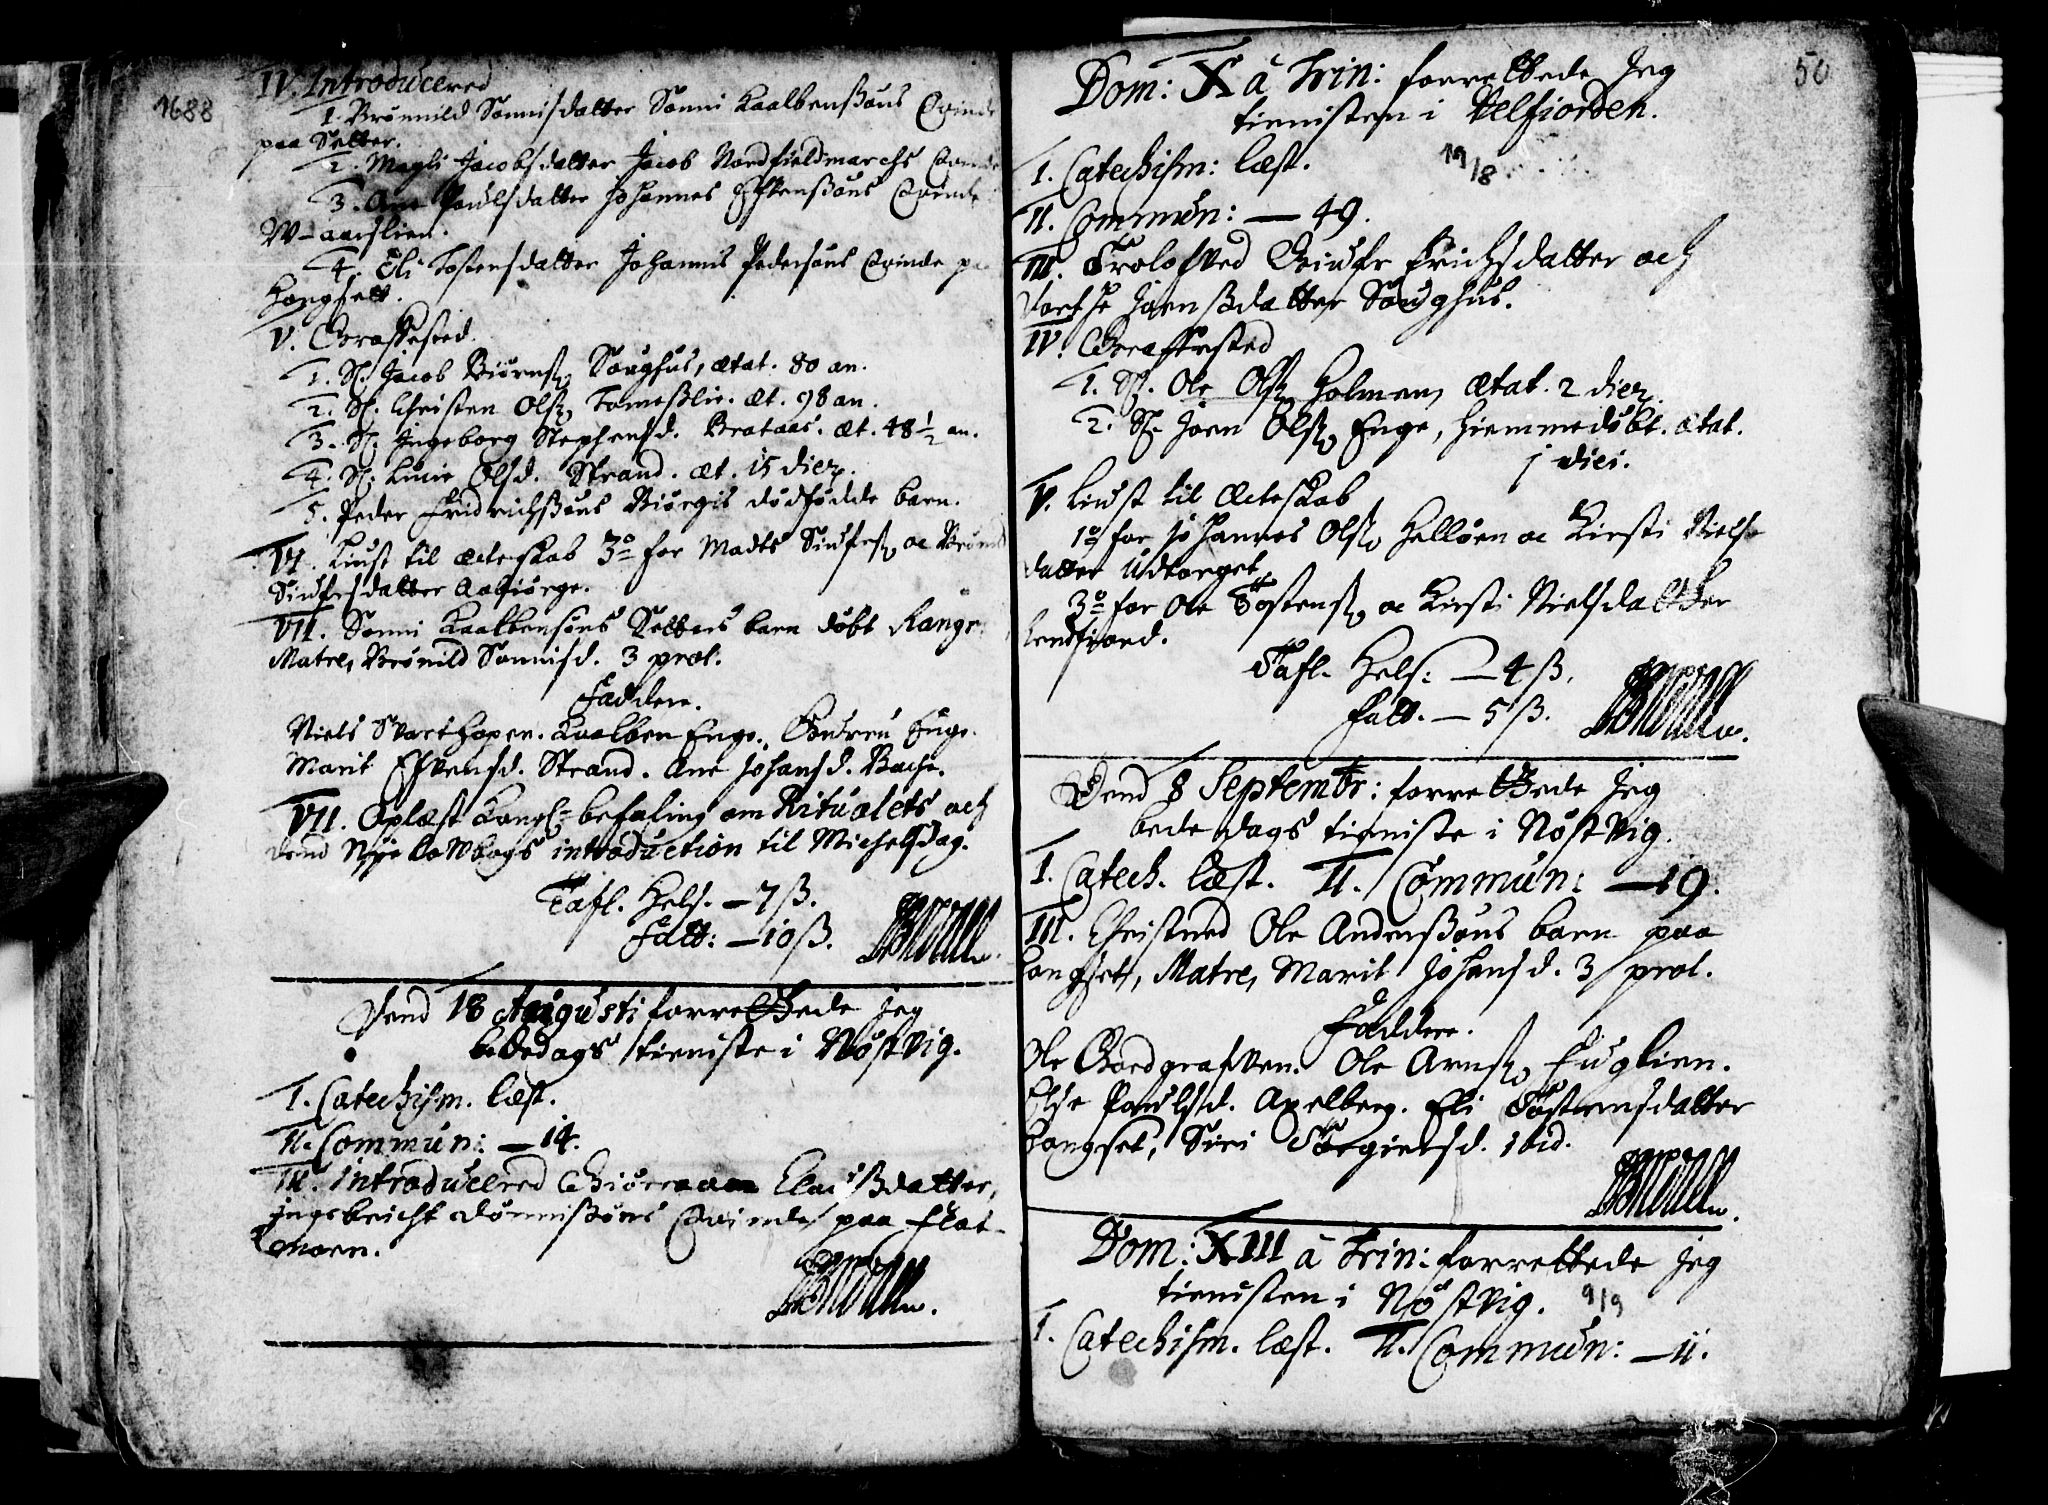 1688
IV. Introducered
1. Brönnild Sonnisdatter Sonni Kaalbensøns Qvinde
paa Setter.
2. Magli Jacobsdatter Jacob Nordfieldmarchs Qvinde
3. Ane Poulsdatter Johannes Eskensøns Qvinde
4. Eli Tostensdatter Johannis Pedersøns Qvinde p
Hongset.
V. Begraffvested.
1. Sl. Jacob Biörnß. Søughus, ætat. 80 an.
2. Sl. Christen Olß. Tomeßlie. æt. 98 an.
3. Sl. Ingeborg Stephensd. Brataas. æt. 48 1/2 an.
4. Sl. Lucie Olsd. Strand. æt. 15 dier.
5. Peder Fridrichßøns Biörgis dödfödde barn.
VI. Liust til ecteskab 3o for Madts Siufrß. oc
Siufrsdatter Aabiörge.
VII. Sonni Kaalbensøns Setters barn döbt
Matre, Brönild Sonnisd. 3 præl.
Faddere.
Niels Svarthopen. Kaalben Enge. Gudru Enge.
Marit Eskensd. Strand. Ane Johansd. Bache.
VII. Oplæst Kongl: befaling om Ritualets och
dend Nÿe Lowbogs introduction til Michelsdag.
Tafl. Hels. — 7 ß.
Fatt: — 10 ß.
Dend 18 Augusti forrettede Jeg
bededags tieniste i Nöstvig.
I. Catechism. læst.
II. Commun: — 14.
III. Introducered Claußdatter,
Ingebricht Tönnisøns Qvinde paa Flat-
moen.
50
Dom: X â Trin: forrettede Jeg
tienisten i Velfiorden.
19/8
I. Catechism: læst.
II. Commun: — 49.
III. Trolofved Erichsdatter och
Joenßdatter Søughus.
IV. Begraffvested
1. Sl. Ole Olß. Holmen, ætat. 2 dier.
2. Sl. Joen Olß. Enge, hiemmedöbt. ætat.
1 diei.
V. Liust til Ecteskab
1o for Johannes Olß. Helloen oc Kirsti Niels-
datter Udtorget.
3o for Ole Tostenß. oc Kirsti Nielsdatter
Tafl. Hels: — 4 ß.
Fatt. — 5 ß.
Dend 8 Septembr: forrettede Jeg
bededags tieniste i Nöstvig.
I. Catech. læst. II. Commun: — 19.
III. Christned Ole Andersßøns barn paa
Hongset, Matre, Marit Johansd. 3 præl.
Faddere.
Ole Gordgrafven. Ole Arnß. Fuglien.
Else Poulsd. Axelberg. Eli Töstensdatter
Hongset, Siri Torgiersd. ibid.
Dom: XIII â Trin: forrettede Jeg
tienisten i Nöstvig. 9/9
I. Catechism. læst. II. Commun: — 11.